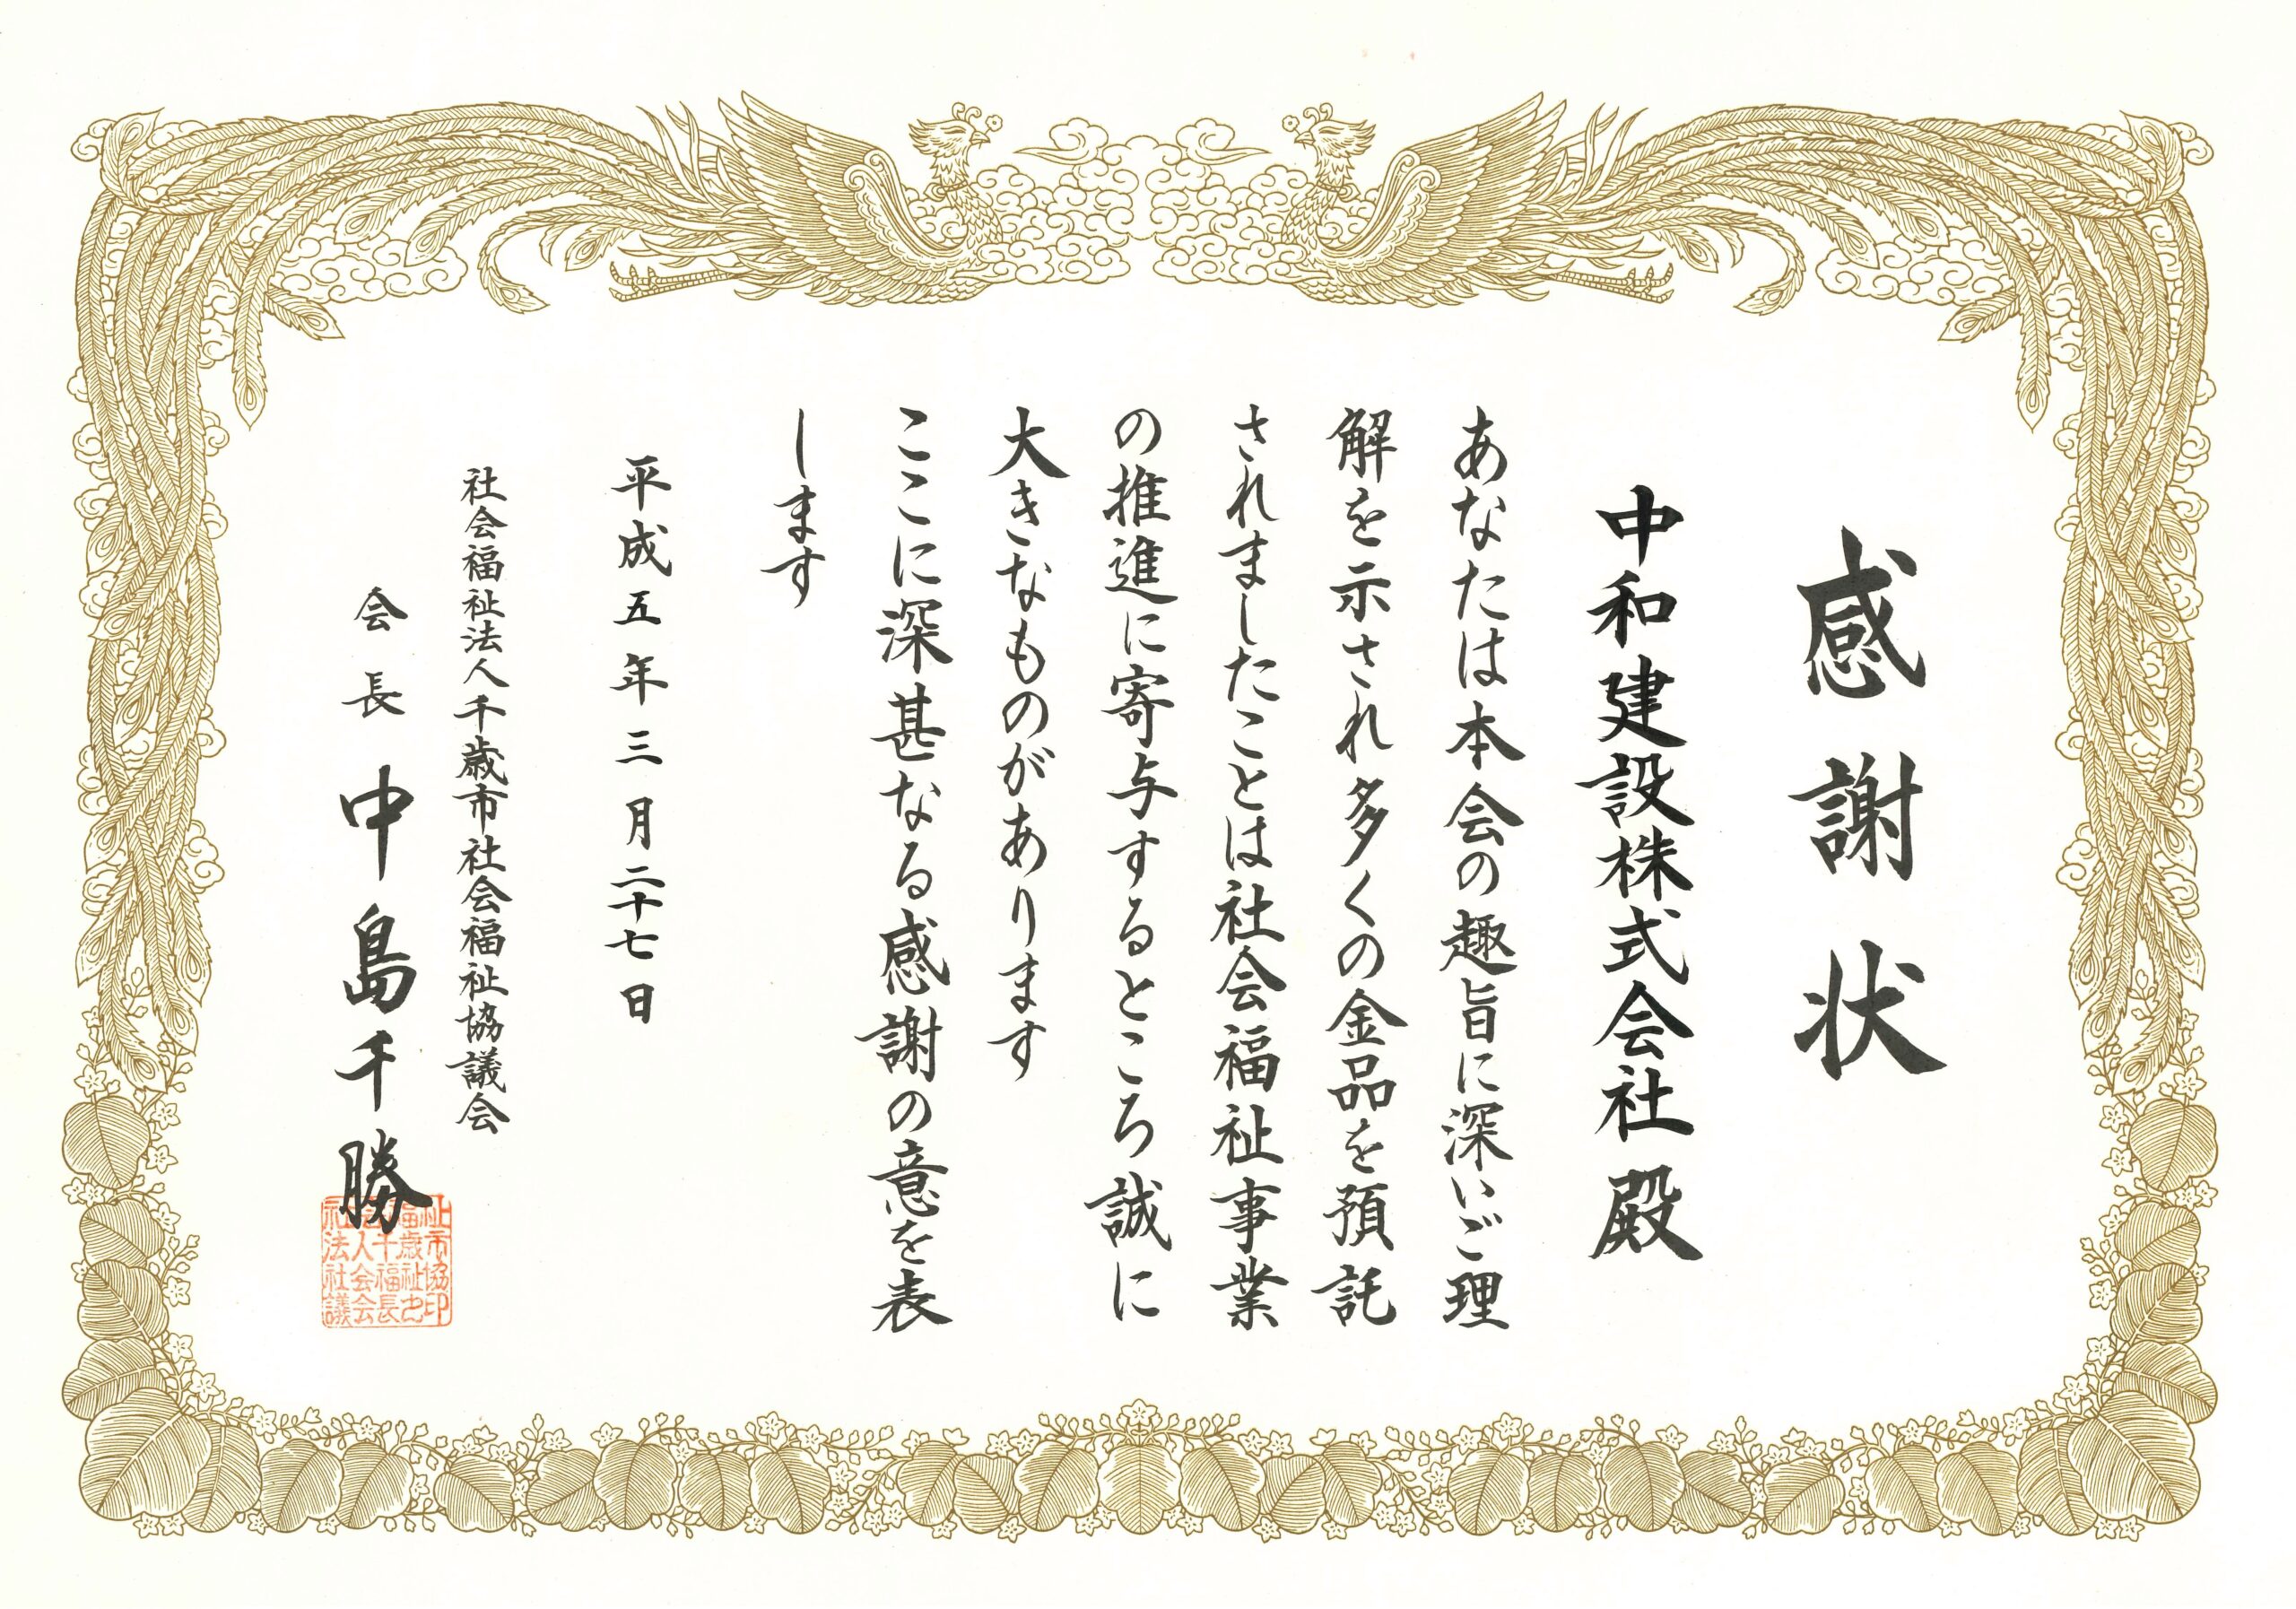 感謝状
中和建設株式会社殿
あなたは本会の趣旨に深いご理
解を示され多くの金品を預託
されましたことは社会福祉事業
の推進に寄与するところ誠に
大きなものがあります
ここに深甚なる感謝の意を表
します
平成五年三月二十七日
社会福祉法人千歳市社会福祉協議会
会長 中島千勝